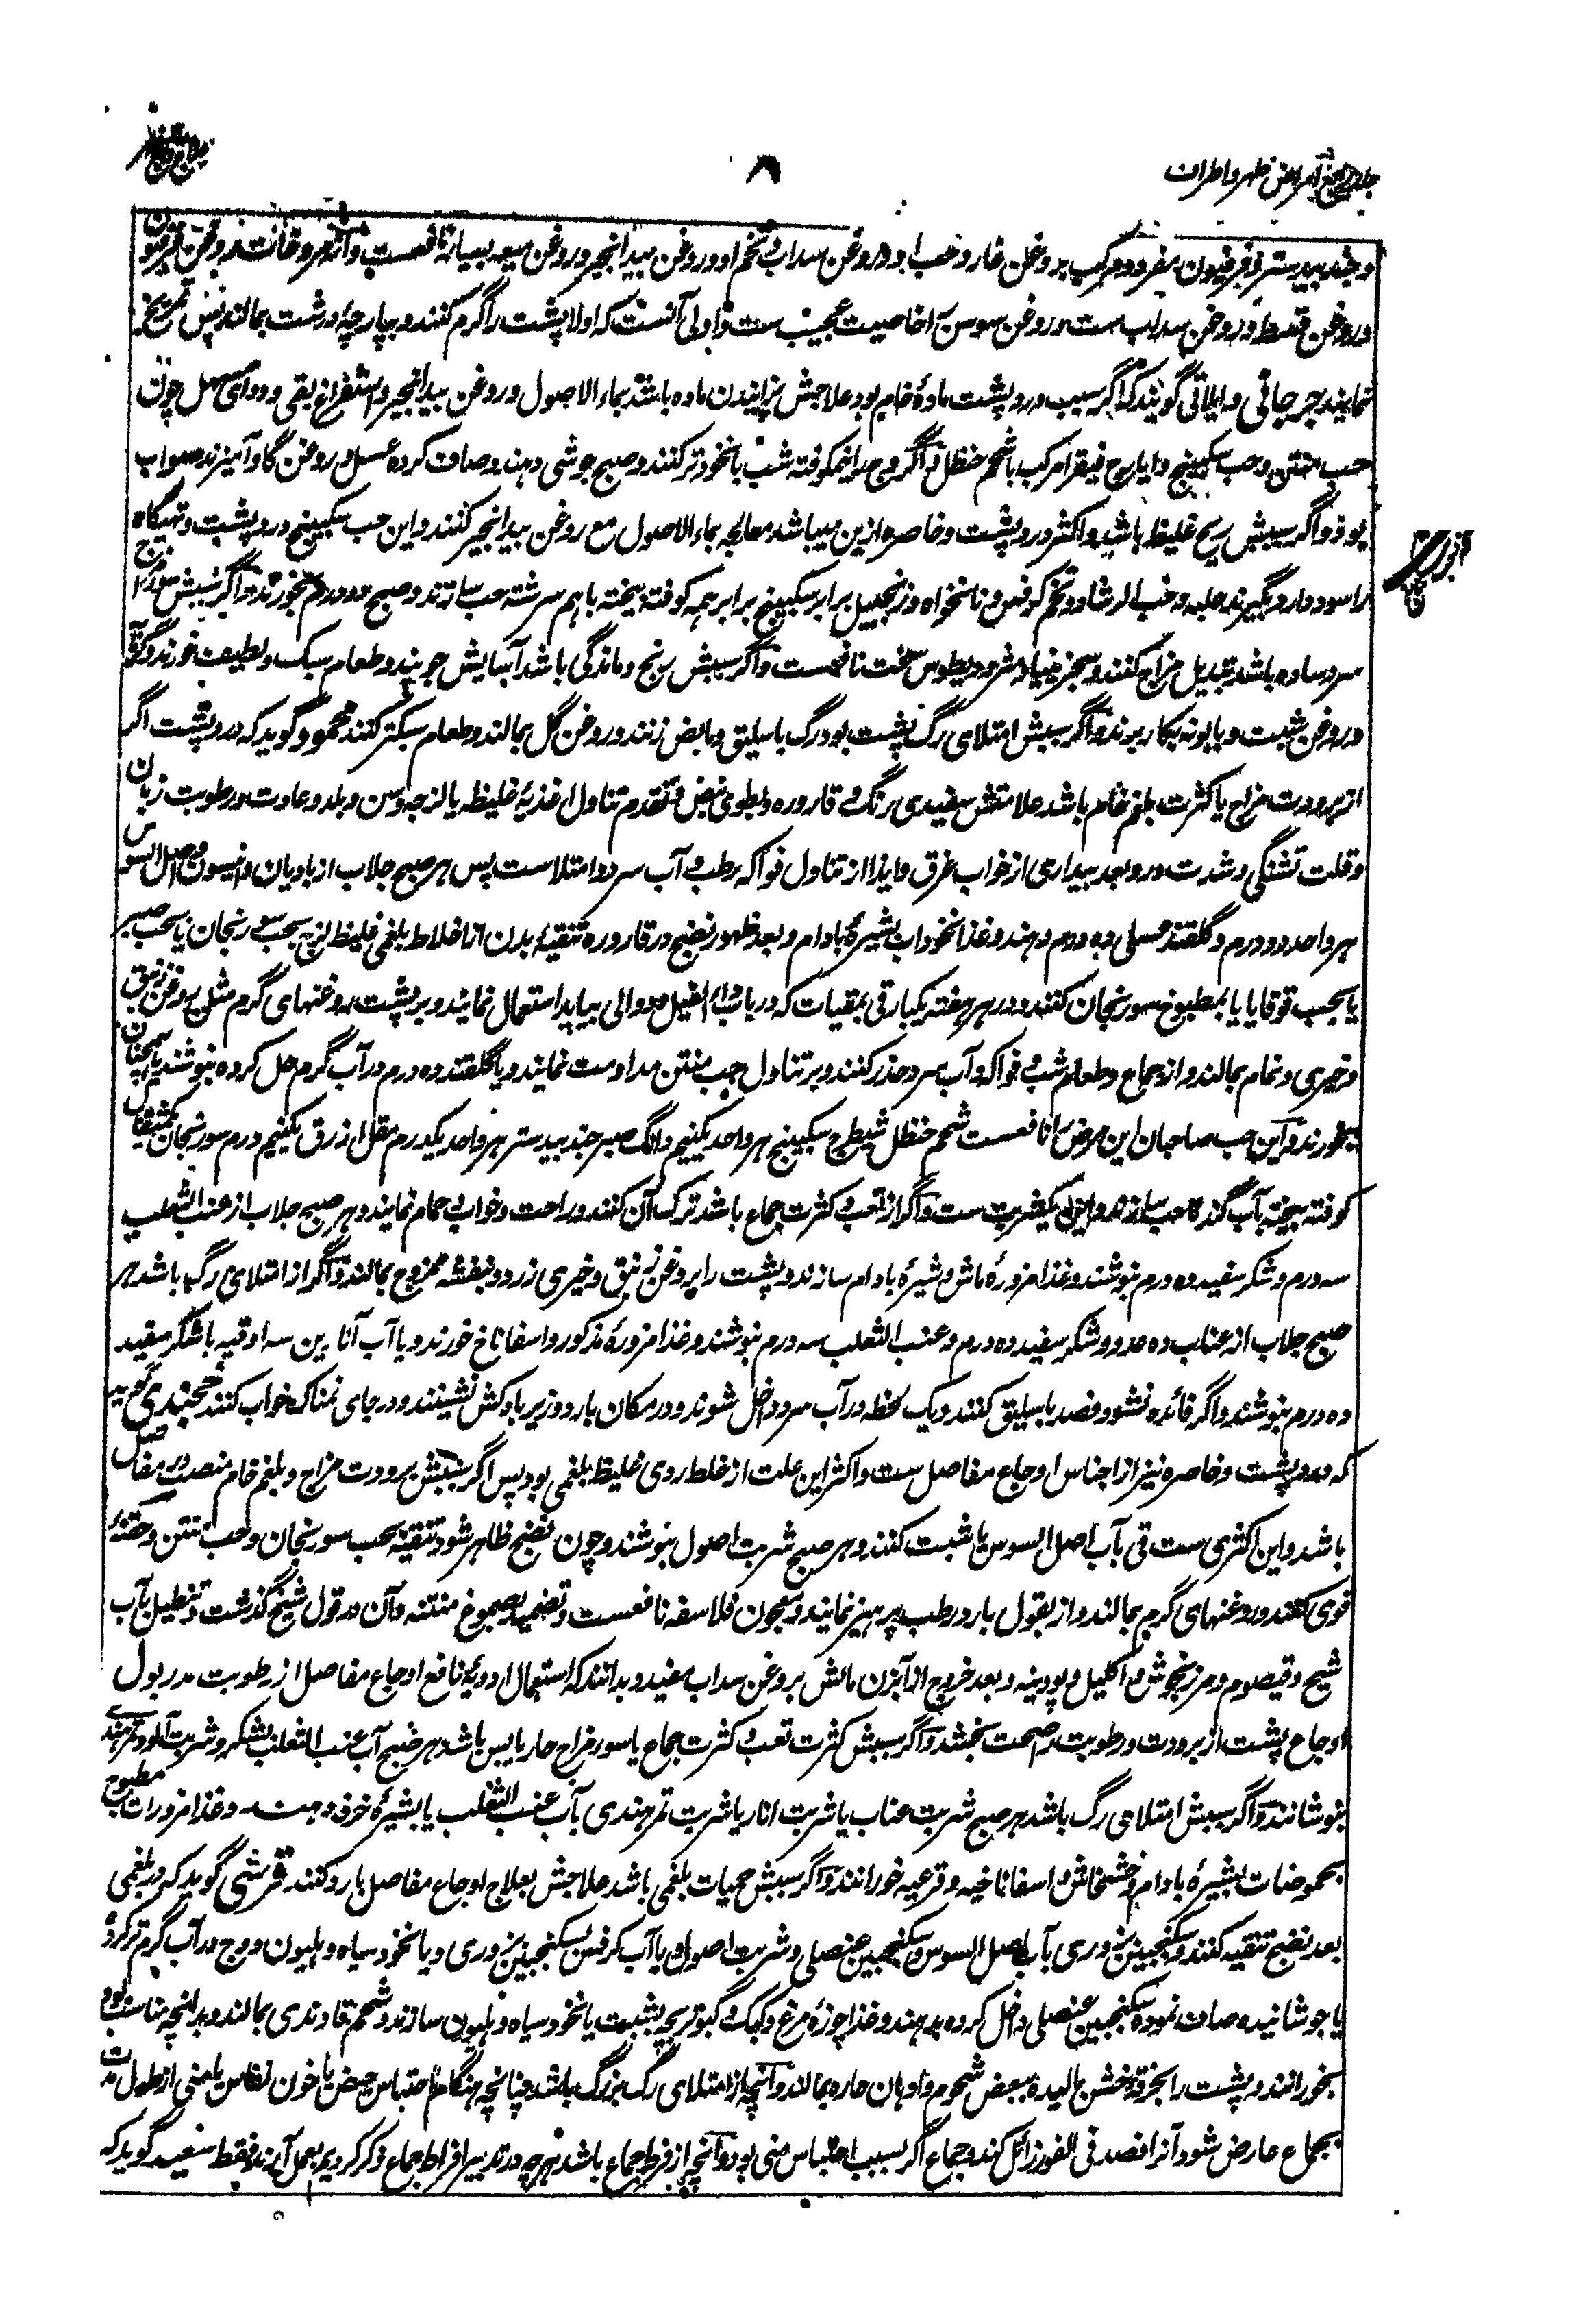 جلد چهارم امراض ظهر و اطراف
۸
و جندبیدستر و فرفیون مفرد و مرکب بروغن غار و حب او و روغن سداب و تخم او و روغن بیدانجیر و روغن میعه بسیار نافعست و آنچه مروخانست روغن فرفیون
و روغن قسط و روغن سداب ست و روغن سوسن را خاصیت عجیب ست و اولی آنست که اولا پشت را گرم کنند و بپارچهٔ درشت بمالند پس تمریخ
نمایند جرجانی و ایلاقی گویند که اگر سبب درد پشت مادهٔ خام بود علاجش پزانیدن ماده باشد بماء الاصول و روغن بیدانجیر و استفراغ بقی و دوای مسهل چون
حب منتن و حب سکبینج و ایارج فیقرا مرکب با شحم حنظل و اگر وج را نیمکوفته شب با نخود تر کنند و صبح جوشی دهند و صاف کرده عسل و روغن گاو آمیزند صواب
بود و اگر سببش ریح غلیظ باشد و اکثر درد پشت و خاصره ازین میباشد معالجه بماء الاصول مع روغن بیدانجیر کنند و این حب سکبینج درد پشت و تهیگاه
را سود دارد بگیرند حلبه و حب الرشاد و تخم کرفس و نانخواه و زنجبیل برابر سکبینج برابر همه کوفته بیخته باهم سرشته حب سازند و صبح دو درم بخورند و اگر سببش سوء مزاج
سرد ساده باشد تبدیل مزاج کنند و سجزینیا و مثرودیطوس سخت نافعست و اگر سببش رنج و ماندگی باشد آسایش جویند و طعام سبک و لطیف خورند و
و روغن شبت و بابونه بکار برند و اگر سببش امتلای رگ پشت بود رگ باسلیق و مابض زنند و روغن گل بمالند و طعام سبکتر کنند محمود گوید که درد پشت اگر
از برودت مزاج یا کثرت بلغم خام باشد علامتش سفیدی رنگ و قاروره و بطوئ نبض و تقدم تناول اغذیهٔ غلیظه یا لزجه و سن و بلد و عادت و رطوبت زبان
و قلت تشنگی و شدت درد بعد بیداری از خواب غرق و ایذا از تناول فواکه رطب و آب سرد و امتلاست پس هر صبح جلاب از بادیان و انیسون و اصل السوس
هر واحد دو درم و گلقند عسلی ده درم دهند و غذا نخوداب بشیرهٔ بادام و بعد ظهور نضج در قاروره تنقیهٔ بدن از اخلاط بلغمی غلیظ لزج بحب سورنجان یا بحب صبر
یا بحب قوقایا یا بمطبوخ سورنجان کنند و در هر هفته یکبار قی بمقیات که در باب داء الفیل و دوالی بیاید استعمال نمایند و بر پشت روغنهای گرم مثل روغن زنبق
و خیری و نمام بمالند و از جماع و طعام شب و فواکه و آب سرد حذر کنند و بر تناول حب منتن مداومت نمایند و یا گلقند ده درم در آب گرم حل کرده بنوشند یا همچنان
بخورند و این حب صاحبان این مرض را نافعست شحم حنظل شیطرج سکبینج هر واحد یکنیم دانگ صبر جندبیدستر هر واحد یکدرم مقل ازرق یکنیم درم سورنجان
کوفته بیخته بآب گندنا حب سازند و این یکشربت ست و اگر از تعب و کثرت جماع باشد ترک آن کنند و راحت و خواب و حمام نمایند و هر صبح جلاب از عنب الثعلب
سه درم و شکر سفید ده درم بنوشند و غذا مزورهٔ ماش و شیرهٔ بادام سازند و پشت را بروغن زنبق و خیری زرد و بنفشه ممزوج بمالند و اگر از امتلای رگ باشد هر
صبح جلاب از عناب ده عدد و شکر سفید ده درم و عنب الثعلب سه درم بنوشند و غذا مزورهٔ مذکور و اسفاناخ خورند و یا آب انارین سه اوقیه با شکر سفید
ده درم بنوشند و اگر فائده نشود فصد باسلیق کنند و یک لحظه در آب سرد داخل شوند و در مکان بارد و زیر بادکش نشینند و در جای نمناک خواب کنند خجندی گوید
که درد پشت و خاصره نیز از اجناس اوجاع مفاصل ست و اکثر این علت از خلط ردی غلیظ بلغمی بود پس اگر سببش برودت مزاج و بلغم خام منصب در مفاصل
باشد و این اکثری ست قی بآب اصل السوس یا شبت کنند و هر صبح شربت اصول بنوشند و چون نضج ظاهر شود تنقیه بحب سورنجان و حب منتن و حقنهٔ
قوی کنند و روغنهای گرم بمالند و از بقول بارد و رطب پرهیز نمایند و معجون فلاسفه نافعست و تضمید بصموغ منتنه و آن در قول شیخ گذشت و تنطیل بآب
شیح و قیصوم و مرزنجوش و اکلیل و پودینه و بعد خروج از آبزن مالش بروغن سداب مفید و بدانند که استعمال ادویهٔ نافع اوجاع مفاصل از رطوبت مدر بول
اوجاع پشت از برودت و رطوبت را صحت بخشد و اگر سببش کثرت تعب و کثرت جماع یا سوء مزاج حار یابس باشد هر صبح آب عنب الثعلب بشکر و شربت آلو و تمرهندی
بنوشانند و اگر سببش امتلای رگ باشد هر صبح شربت عناب یا شربت انار یا شربت تمرهندی بآب عنب الثعلب یا بشیرهٔ خرفه دهند و غذا مزورات مطبوخ
بحموضات بشیرهٔ بادام و خشخاش و اسفاناخیه و قرعیه خورانند و اگر سببش حمیات بلغمی باشد علاجش بعلاج اوجاع مفاصل بارد کنند قرشی گوید که در بلغمی
بعد نضج تنقیه کنند و سکنجبین بزوری بآب اصل السوس و سکنجبین عنصلی و شربت اصول و یا آب کرفس بسکنجبین بزوری و یا نخود سیاه و هلیون و وج در آب گرم تر کرده
یا جوشانیده صاف نموده سکنجبین عنصلی داخل کرده بدهند و غذا چوزهٔ مرغ و کبک و کبوتر بچه بشبت یا نخود سیاه و هلیون سازند و شحم قاوندی بمالند و بدانچه مناسب بود
بخورانند و پشت را بخرقهٔ خشن مالیده ببعض شحوم و ادهان حاره بمالند و آنچه از امتلای رگ بزرگ باشد چنانچه هنگام احتباس حیض یا خون نفاس یا منی از طول مدت
بجماع عارض شود آنرا فصد فی الفور زائل کند و جماع اگر بسبب احتباس منی بود و آنچه از فرط جماع باشد هر چه در تدبیر افراط جماع ذکر کردیم بعمل آرند فقط سعید گوید که